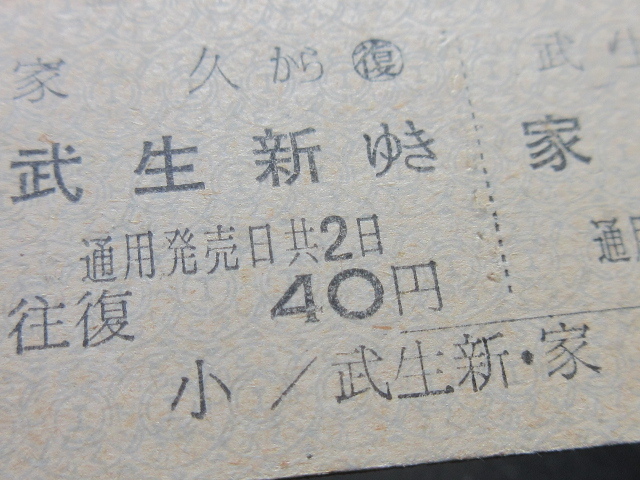 家久から㊝復
武生新ゆき
通用発売日共2日
往復 40円
小／武生新・家
武生
家
通用